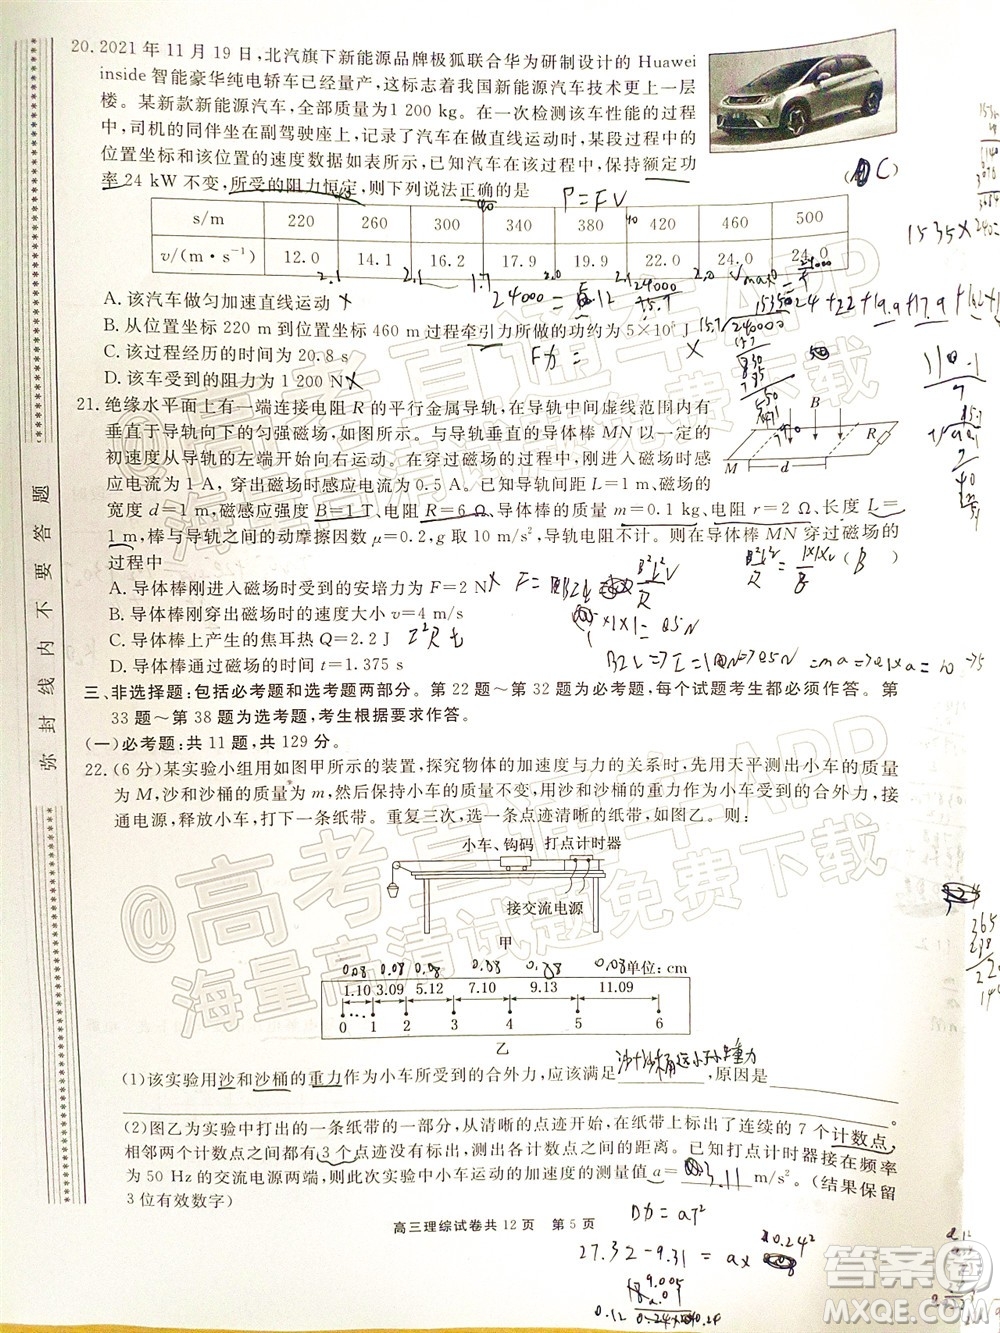 20. 2021年11月19日,北汽旗下新能源品牌极狐联合华为研制设计的 Huawei
inside 智能豪华纯电轿车已经量产,这标志着我国新能源汽车技术更上一层
楼。某新款新能源汽车,全部质量为1 200 kg。在一次检测该车性能的过程
中,司机的同伴坐在副驾驶座上,记录了汽车在做直线运动时,某段过程中的
位置坐标和该位置的速度数据如表所示,已知汽车在该过程中,保持额定功
率24 kW不变,所受的阻力恒定,则下列说法正确的是
( C )
P=FV
s/m 220 260 300 340 380 420 460 500
v/(m·s⁻¹) 12.0 14.1 16.2 17.9 19.5 21.6 23.6 24.0
A. 该汽车做匀加速直线运动
B. 从位置坐标220 m到位置坐标460 m过程牵引力所做的功约为5×10⁵ J
C. 该过程经历的时间为20.8 s
D. 该车受到的阻力为1 200 N
21. 绝缘水平面上有一端连接电阻R的平行金属导轨,在导轨中间虚线范围内有
垂直于导轨向下的匀强磁场,如图所示。与导轨垂直的导体棒MN以一定的
初速度从导轨的左端开始向右运动。在穿过磁场的过程中,刚进入磁场时感
应电流为1 A,穿出磁场时感应电流为0.5 A。已知导轨间距L=1 m,磁场的
宽度d=1 m,磁感应强度B=1 T,电阻R=6 Ω,导体棒的质量m=0.1 kg,电阻r=2 Ω,长度L=
1 m,棒与导轨之间的动摩擦因数μ=0.2,g取10 m/s²,导轨电阻不计。则在导体棒MN穿过磁场的
过程中
( B )
B
R
M
N
d
A. 导体棒刚进入磁场时受到的安培力为F=2 N
B. 导体棒刚穿出磁场时的速度大小v=4 m/s
C. 导体棒上产生的焦耳热Q=2.2 J
D. 导体棒通过磁场的时间t=1.375 s
三、非选择题:包括必考题和选考题两部分。第22题~第32题为必考题,每个试题考生都必须作答。第
33题~第38题为选考题,考生根据要求作答。
(一)必考题:共11题,共129分。
22. (6分)某实验小组用如图甲所示的装置,探究物体的加速度与力的关系时,先用天平测出小车的质量
为M,沙和沙桶的质量为m,然后保持小车的质量不变,用沙和沙桶的重力作为小车受到的合外力,接
通电源,释放小车,打下一条纸带。重复三次,选一条点迹清晰的纸带,如图乙。则:
小车、钩码 打点计时器
接交流电源
甲
0.08 0.08 0.08 0.08 0.08 0.08 单位:cm
1.10 3.11 5.12 7.10 9.13 11.09
0 1 2 3 4 5 6
乙
(1)该实验用沙和沙桶的重力作为小车所受到的合外力,应该满足________,原因是
________。
(2)图乙为实验中打出的一条纸带的一部分,从清晰的点迹开始,在纸带上标出了连续的7个计数点,
相邻两个计数点之间都有3个点迹没有标出,测出各计数点之间的距离。已知打点计时器接在频率
为50 Hz的交流电源两端,则此次实验中小车运动的加速度的测量值a=3.11 m/s²。(结果保留
3位有效数字)
高三理综试卷共12页 第5页
27.32-9.31=a×0.24²
弥封线内不要答题
@高考直通车APP
海量高清试题免费下载
@高考直通车APP
海量高清试题免费下载
答案圈
MXQE.COM